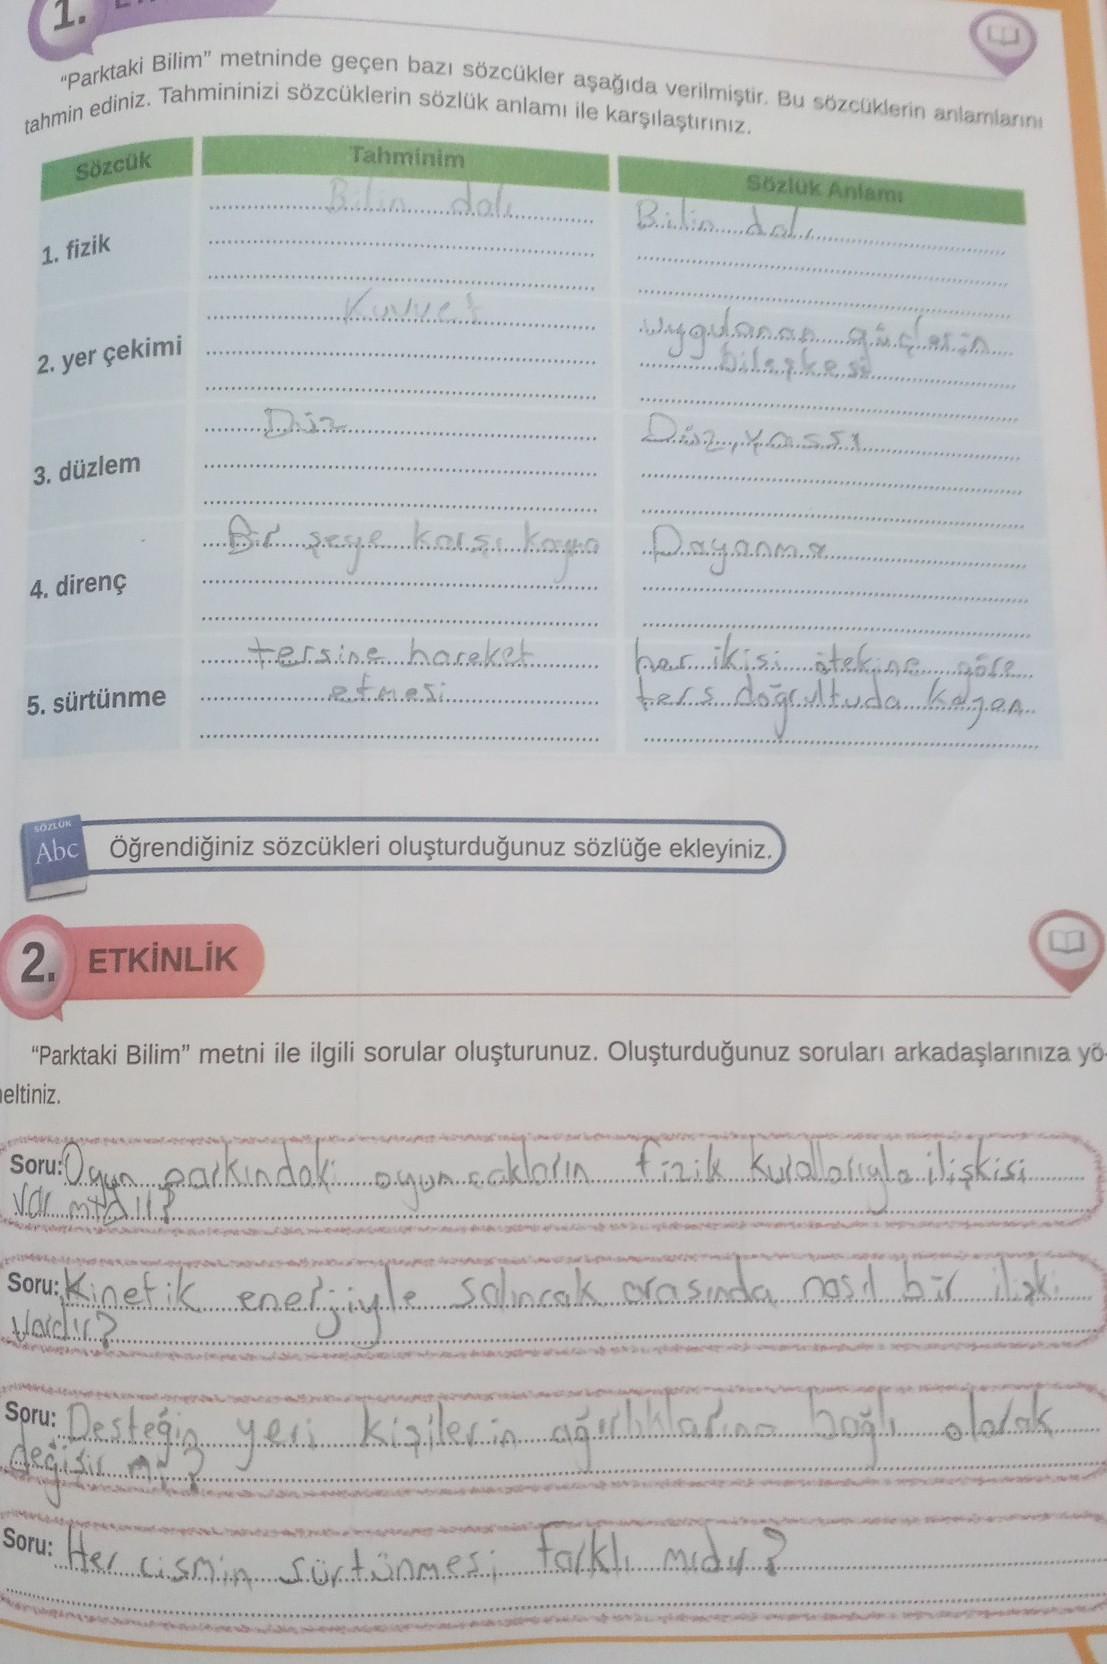 1.
"Parktaki Bilim" metninde geçen bazı sözcükler aşağıda verilmiştir. Bu sözcüklerin anlamlarını
tahmin ediniz. Tahmininizi sözcüklerin sözlük anlamı ile karşılaştırınız.
Sözcük Tahminim Sözlük Anlamı
1. fizik
Bilin dalı
Bilin dalı
2. yer çekimi
Kuvvet
uygulanan güçlerin
bileşkesi
3. düzlem
Düz
Düz, yassı
4. direnç
Bir şeye karşı koyma
Dayanma
5. sürtünme
tersine hareket
etmesi
her ikisi ötekine göre
ters doğrultuda kayan
SÖZLÜK
Abc
Öğrendiğiniz sözcükleri oluşturduğunuz sözlüğe ekleyiniz.
2. ETKİNLİK
"Parktaki Bilim" metni ile ilgili sorular oluşturunuz. Oluşturduğunuz soruları arkadaşlarınıza yö-
neltiniz.
Soru: Oyun parkındaki oyuncakların fizik kurallarıyla ilişkisi
var mıdır?
Soru: Kinetik enerjiyle salıncak arasında nasıl bir ilişki
Vardır?
Soru: Desteğin yeri kişilerin ağırlıklarına bağlı olarak
değişir mi?
Soru: Her cismin sürtünmesi farklı mıdır?